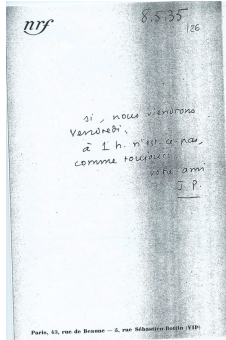 nrf
8.5.35
126
si, nous viendrons
vendredi,
à 1 h. n'est-ce-pas,
comme toujours
votre ami
J. P.
Paris, 43, rue de Beaune — 5, rue Sébastien-Bottin (VIIe)